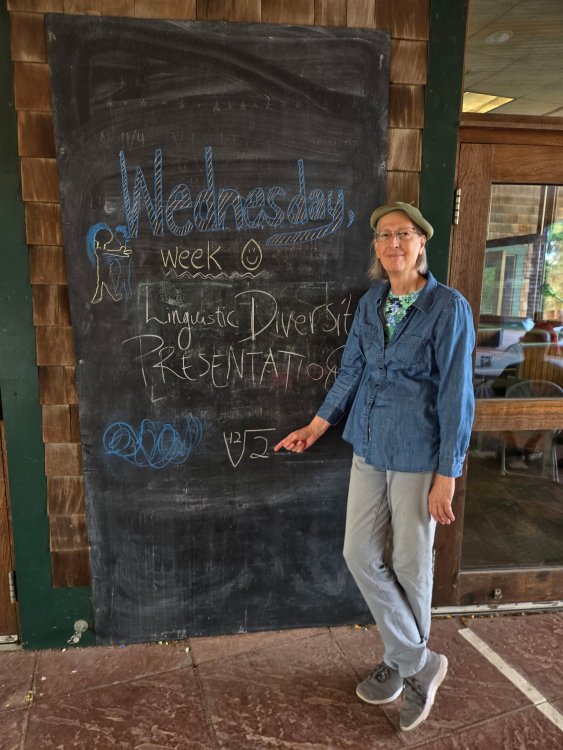 Wednesday,
week ☺
Linguistic Diversit
PRESENTATIO
¹²√2